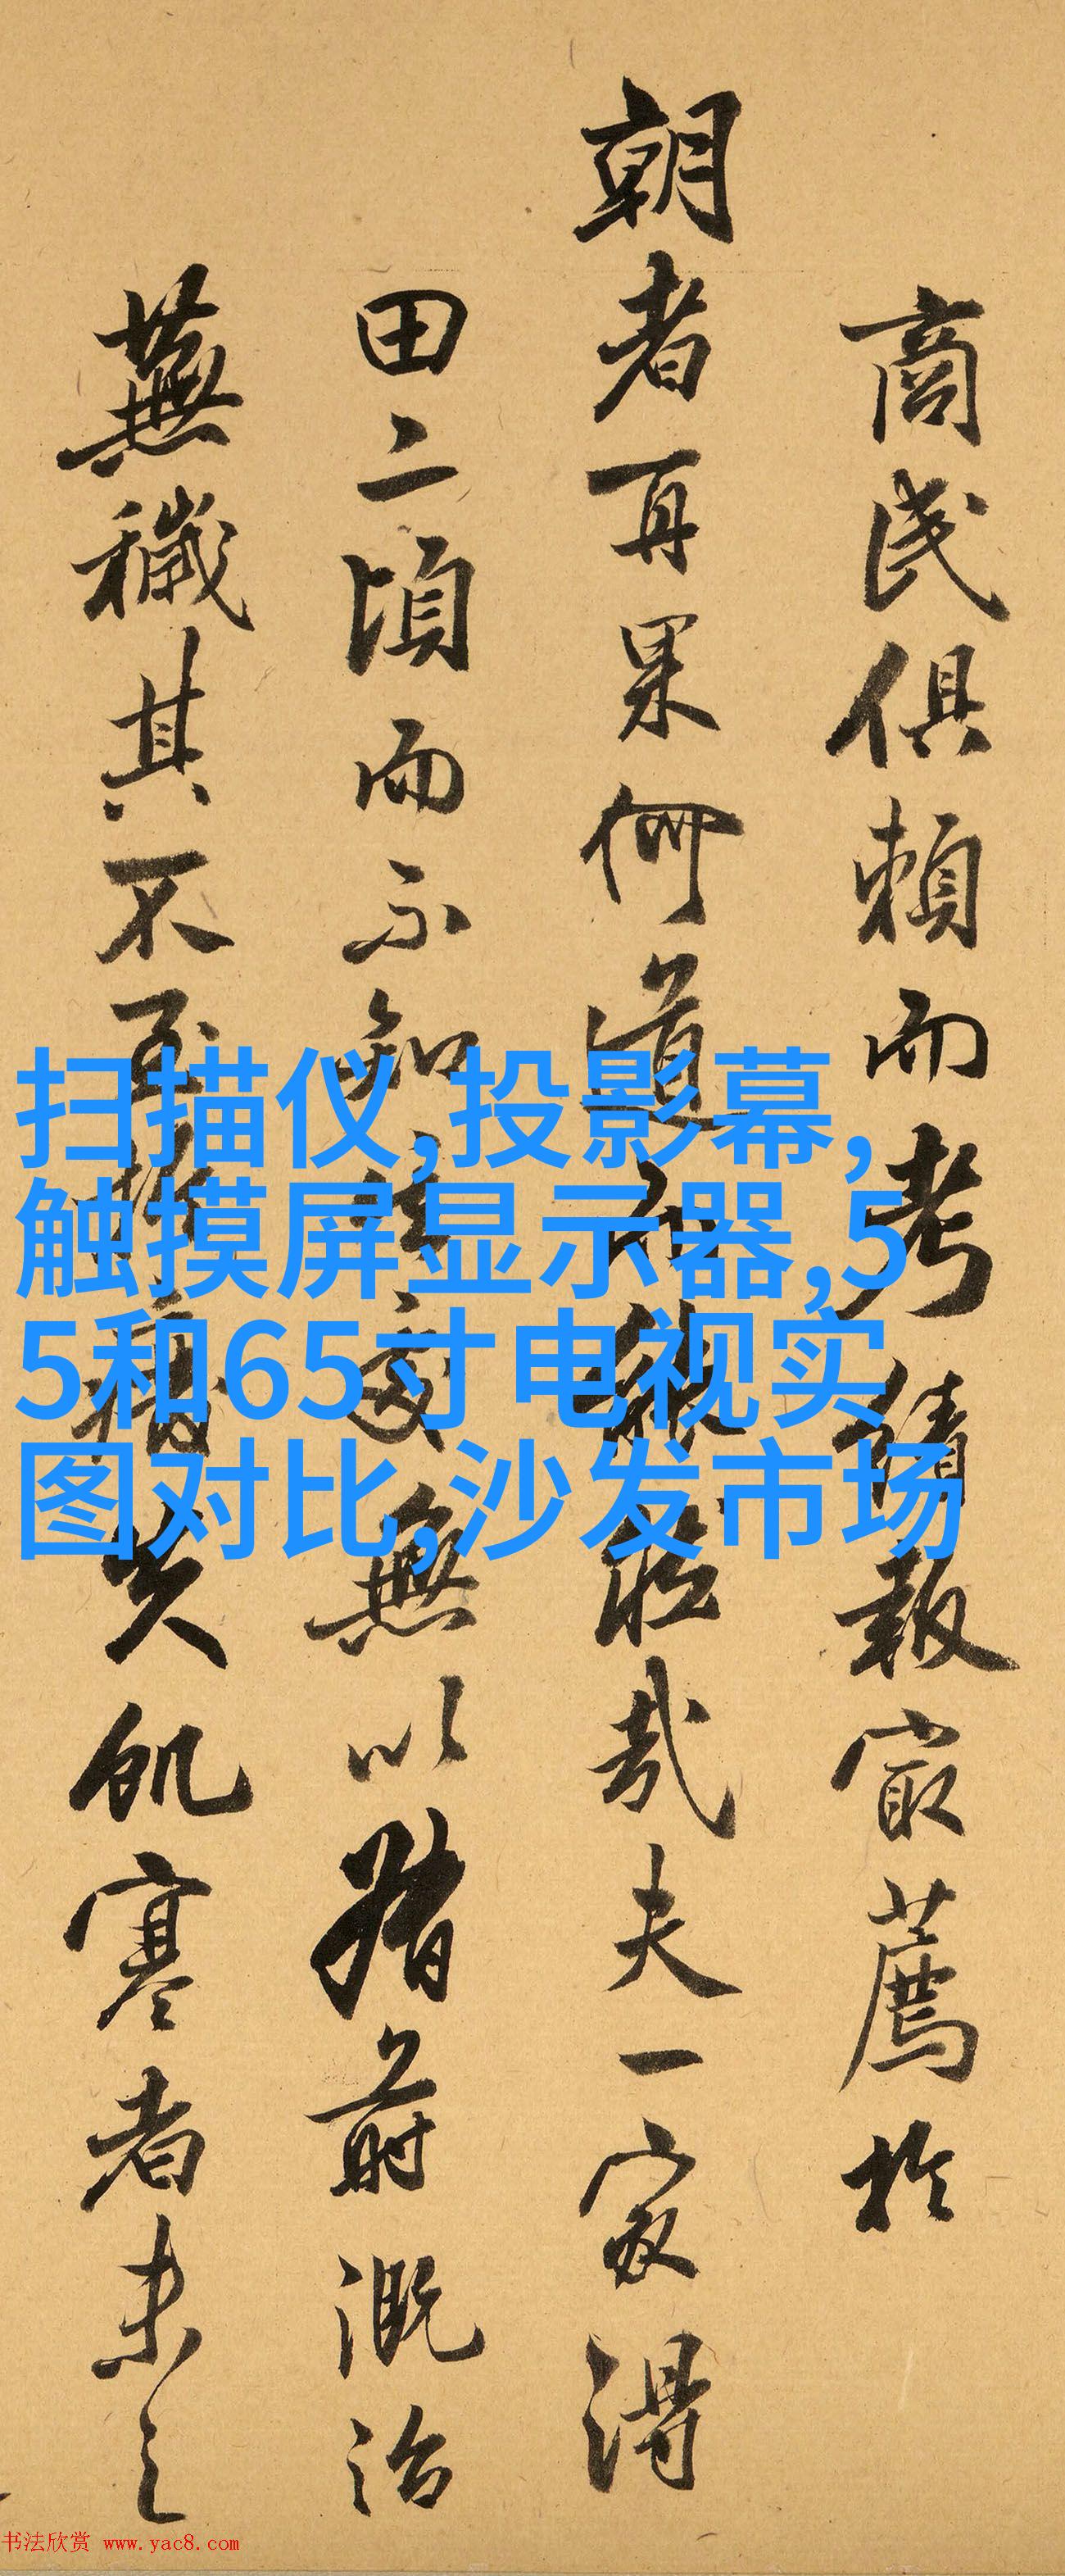 商民俱賴而考績報最薦於
朝者再果何道哉夫一家得
田二頃而不知無以溉治
蕪穢其不至飢寒者未之
扫描仪,投影幕,
触摸屏显示器,5
5和65寸电视实
图对比,沙发市场
书法欣赏 www.yac8.com